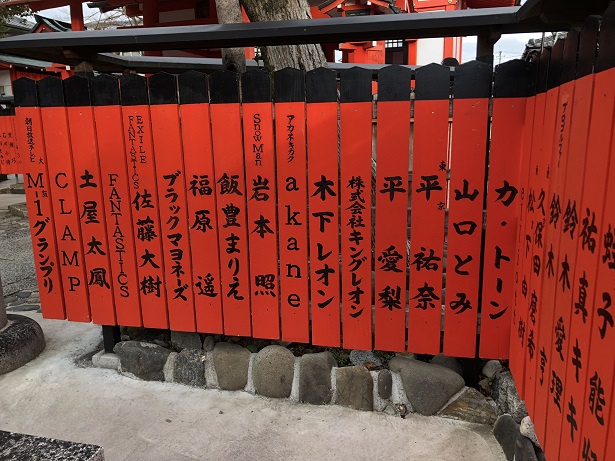 朝日放送テレビ 大阪 M-1グランプリ
CLAMP
土屋太鳳
FANTASTICS
EXILE FANTASTICS 佐藤大樹
ブラックマヨネーズ
福原遥
飯豊まりえ
SnowMan 岩本照
アカネキカク akane
木下レオン
株式会社キングレオン
平愛梨
東京 平祐奈
山口とみ
カ・トーン
松下田
久保田磨希
鈴木亨
鈴木愛理
祐真キキ